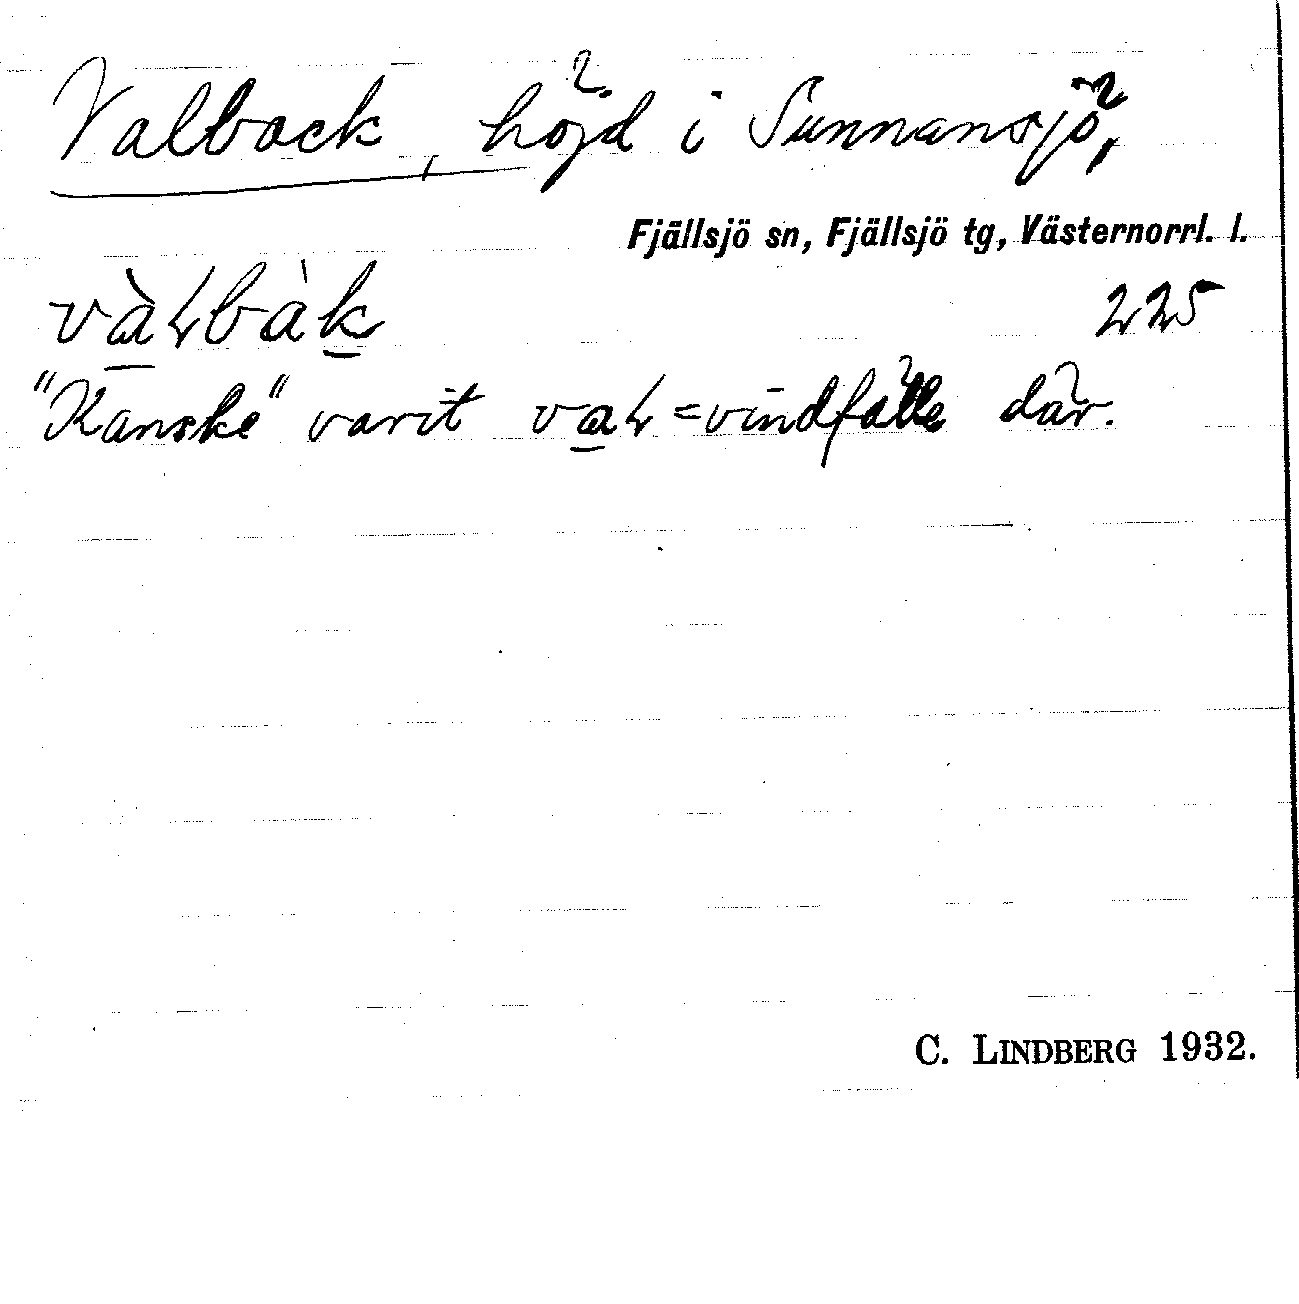 Valback, höjd i Sunnansjö,
Fjällsjö sn, Fjällsjö tg, Västernorrl. l.
và̱ɫbàk̠ 225
"Kanske" varit va̱ɫ = vindfälle där.
C. LINDBERG 1932.